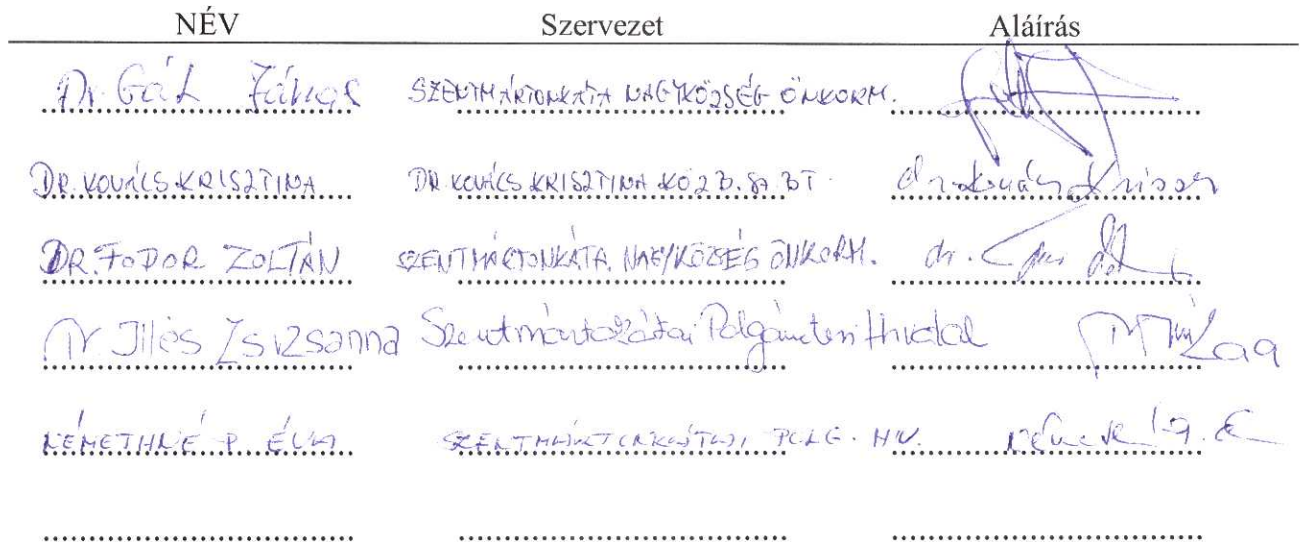 NÉV Szervezet Aláírás
Dr. Gál SZENTMÁRTONKÁTA NAGYKÖZSÉG ÖNKORM.
DR. KOVÁCS KRISZTINA DR. KOVÁCS KRISZTINA KÖZB. BT.
DR. FODOR ZOLTÁN SZENTMÁRTONKÁTA NAGYKÖZSÉG ÖNKORM. dr.
Dr. Illés Zsuzsanna Szentmártonkátai Polgármesteri Hivatal
NÉMETHNÉ P. ÉVA SZENTMÁRTONKÁTAI POLG. HIV.